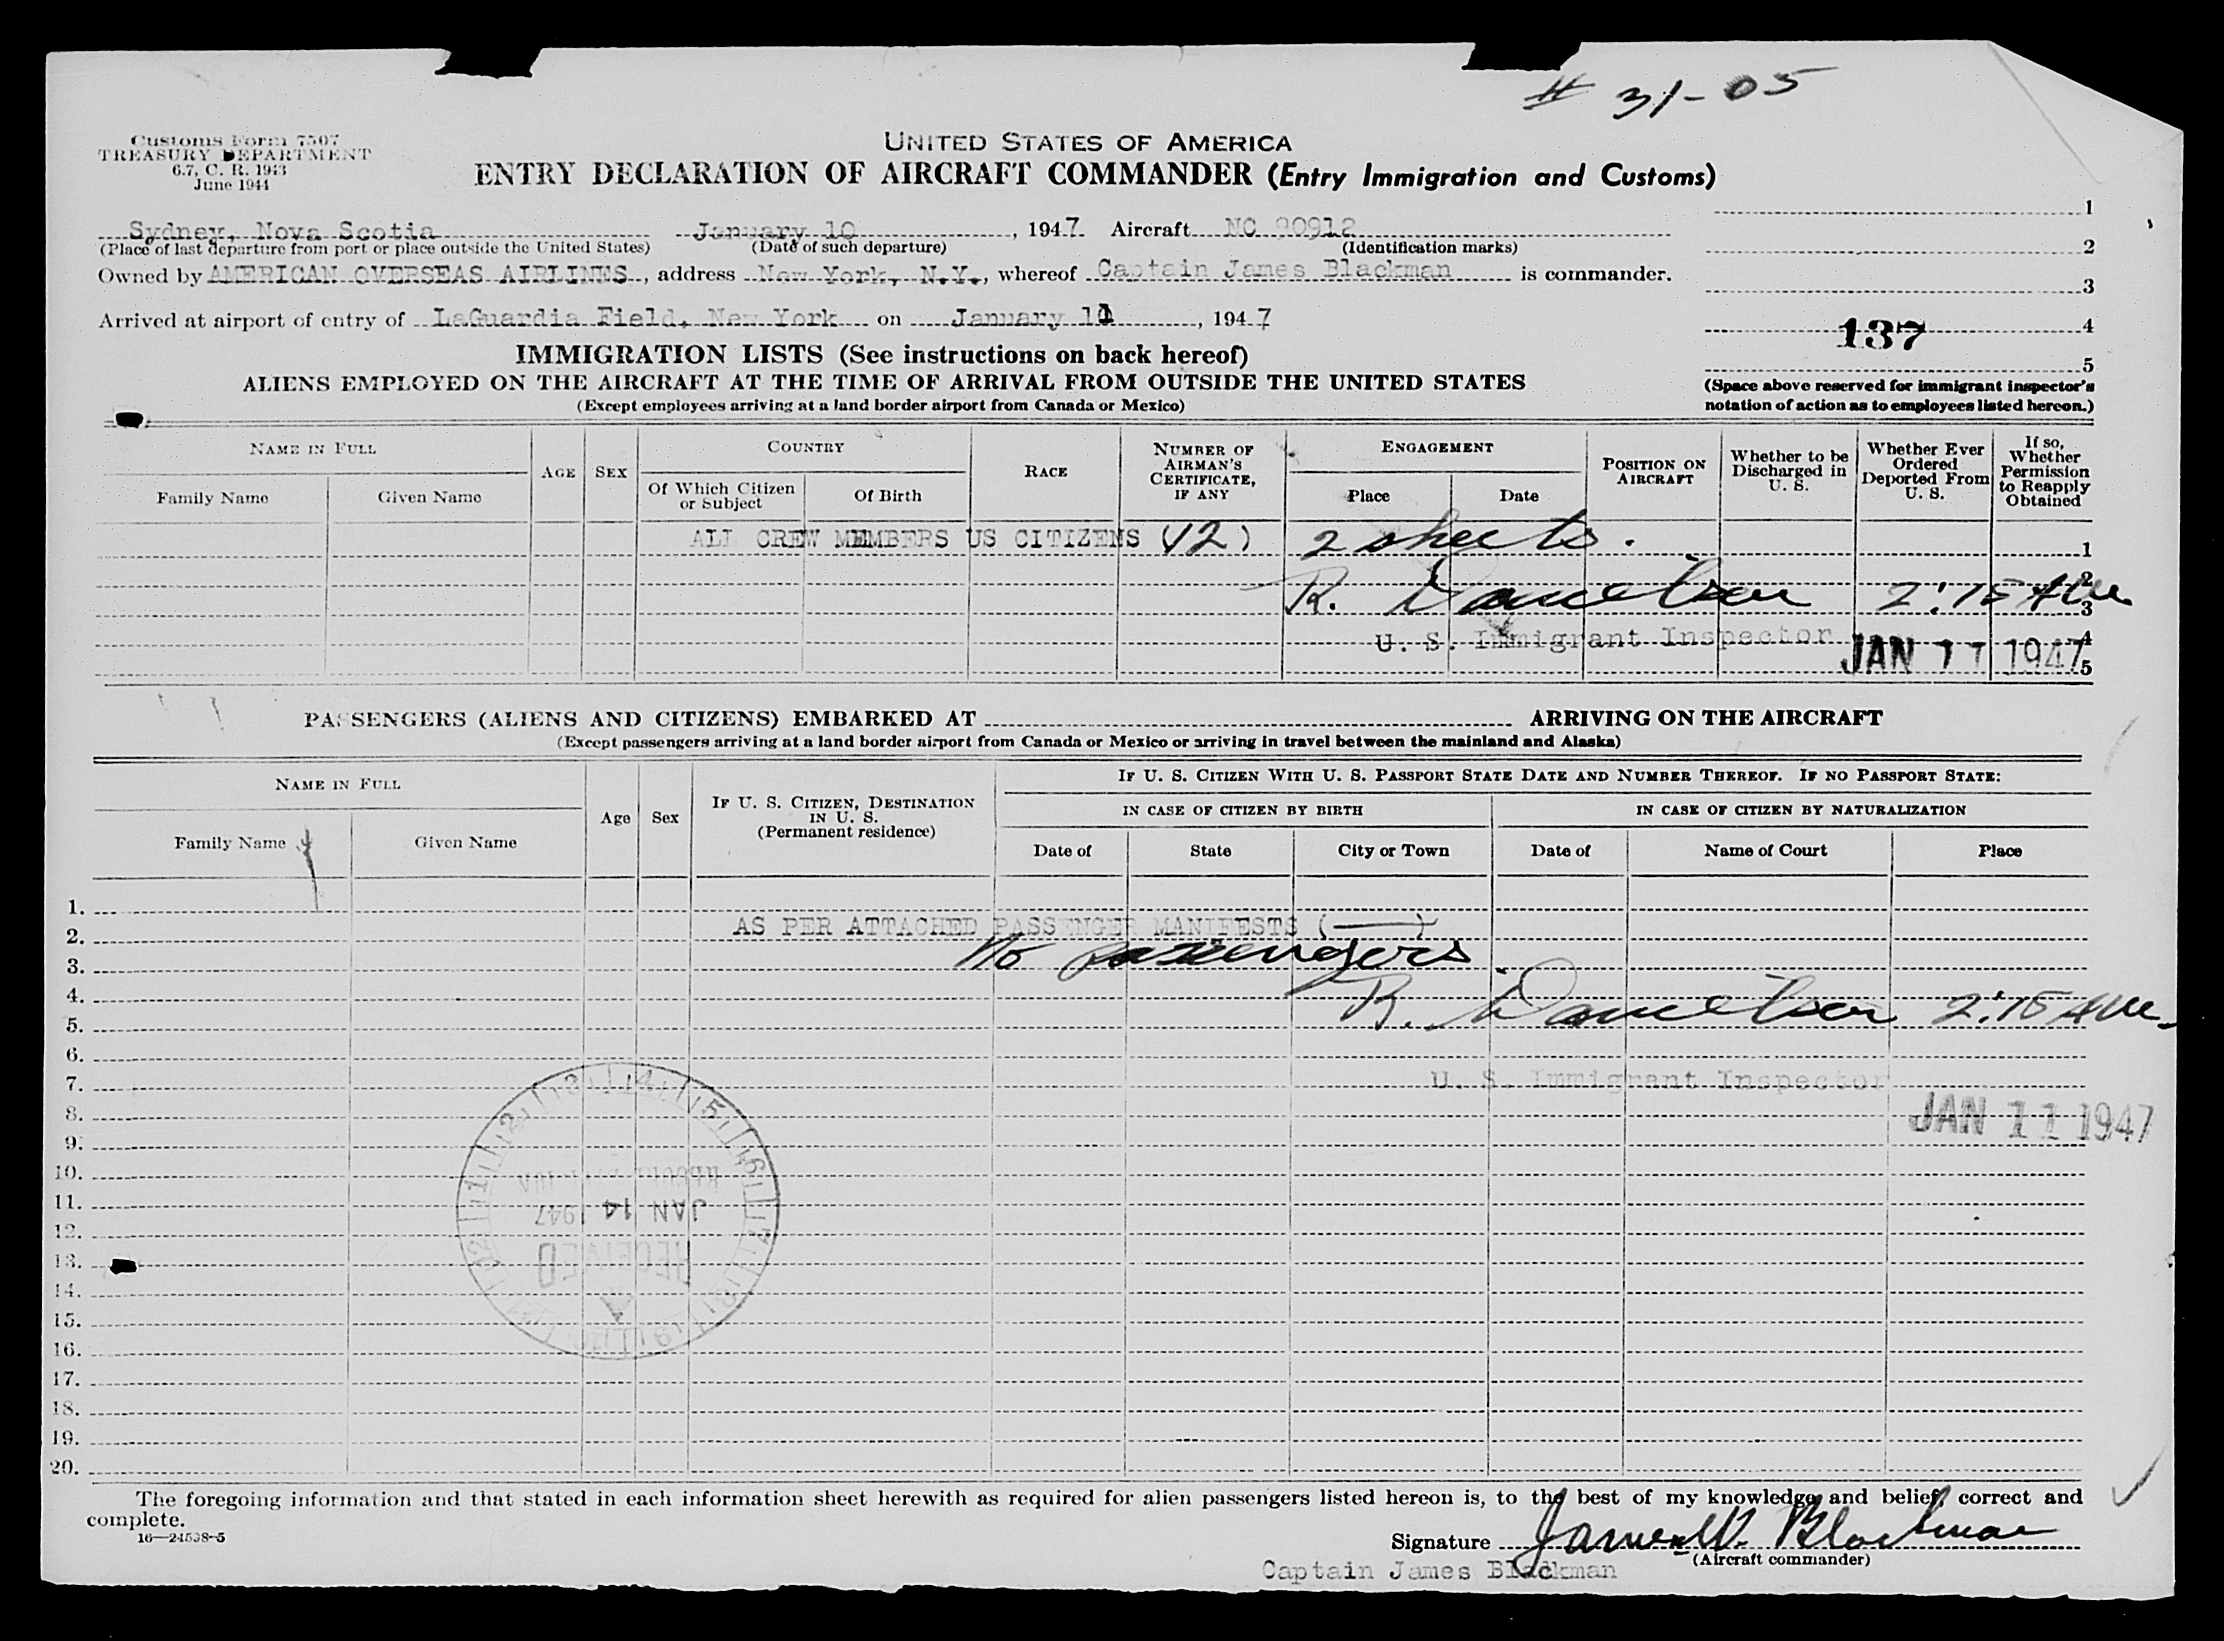 # 31-05
Customs Form 7507
TREASURY DEPARTMENT
6.7, C. R. 1943
June 1944
UNITED STATES OF AMERICA
ENTRY DECLARATION OF AIRCRAFT COMMANDER (Entry Immigration and Customs)
Sydney, Nova Scotia January 10, 1947 Aircraft NC 90912
(Place of last departure from port or place outside the United States) (Date of such departure) (Identification marks)
Owned by AMERICAN OVERSEAS AIRLINES, address New York, N.Y., whereof Captain James Blackman is commander.
Arrived at airport of entry of LaGuardia Field, New York on January 11, 1947
1
2
3
137 4
5
(Space above reserved for immigrant inspector's
notation of action as to employees listed hereon.)
IMMIGRATION LISTS (See instructions on back hereof)
ALIENS EMPLOYED ON THE AIRCRAFT AT THE TIME OF ARRIVAL FROM OUTSIDE THE UNITED STATES
(Except employees arriving at a land border airport from Canada or Mexico)
NAME IN FULL
Family Name Given Name
AGE SEX
COUNTRY
Of Which Citizen or Subject Of Birth
RACE
NUMBER OF AIRMAN'S CERTIFICATE, IF ANY
ENGAGEMENT
Place Date
POSITION ON AIRCRAFT
Whether to be Discharged in U. S.
Whether Ever Ordered Deported From U. S.
If so, Whether Permission to Reapply Obtained
ALL CREW MEMBERS US CITIZENS (12) 2 sheets. 1
2
R. Danielson 2:15 AM 3
U. S. Immigrant Inspector 4
JAN 11 1947 5
PASSENGERS (ALIENS AND CITIZENS) EMBARKED AT ARRIVING ON THE AIRCRAFT
(Except passengers arriving at a land border airport from Canada or Mexico or arriving in travel between the mainland and Alaska)
NAME IN FULL
Family Name Given Name
Age Sex
IF U. S. CITIZEN, DESTINATION IN U. S. (Permanent residence)
IF U. S. CITIZEN WITH U. S. PASSPORT STATE DATE AND NUMBER THEREOF. IF NO PASSPORT STATE:
IN CASE OF CITIZEN BY BIRTH IN CASE OF CITIZEN BY NATURALIZATION
Date of State City or Town Date of Name of Court Place
1.
2. AS PER ATTACHED PASSENGER MANIFESTS (—)
3. No passengers
4.
5. R. Danielson 2:15 AM
6.
7. U. S. Immigrant Inspector
8. JAN 11 1947
9.
10.
11. JAN 14 1947
12.
13. RECEIVED
14.
15.
16.
17.
18.
19.
20.
The foregoing information and that stated in each information sheet herewith as required for alien passengers listed hereon is, to the best of my knowledge and belief, correct and
complete.
16—24538-5
Signature James W. Blackman
(Aircraft commander)
Captain James Blackman